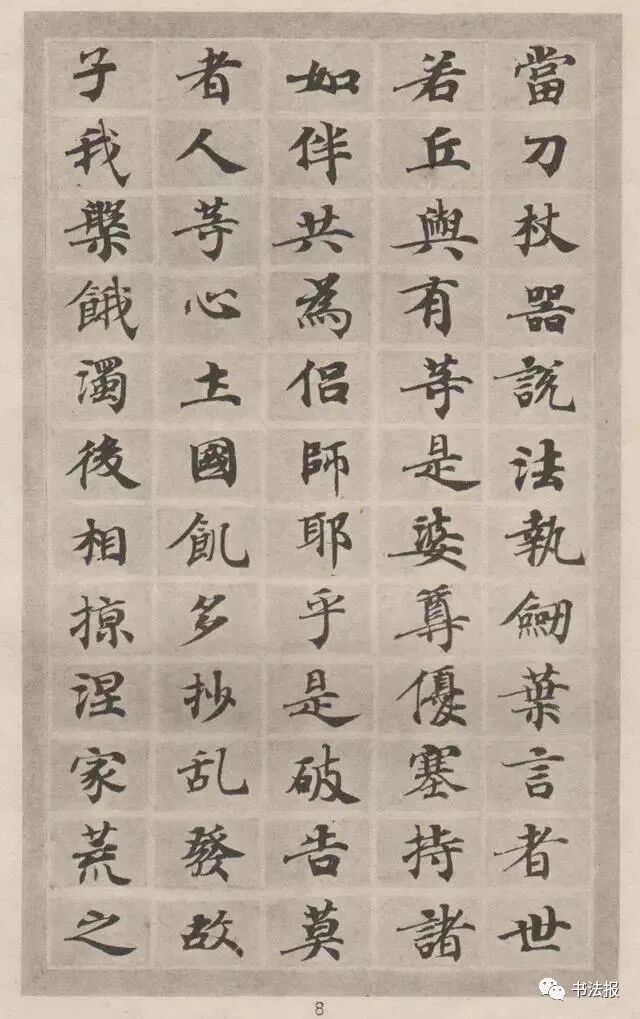 當刀杖器說法執劒葉言者世
若丘與有等是婆尊優塞持諸
如伴共為侣師耶乎是破告莫
者人等心土國飢多抄乱發故
子我槃餓濁後相掠涅家荒之
8
书法报